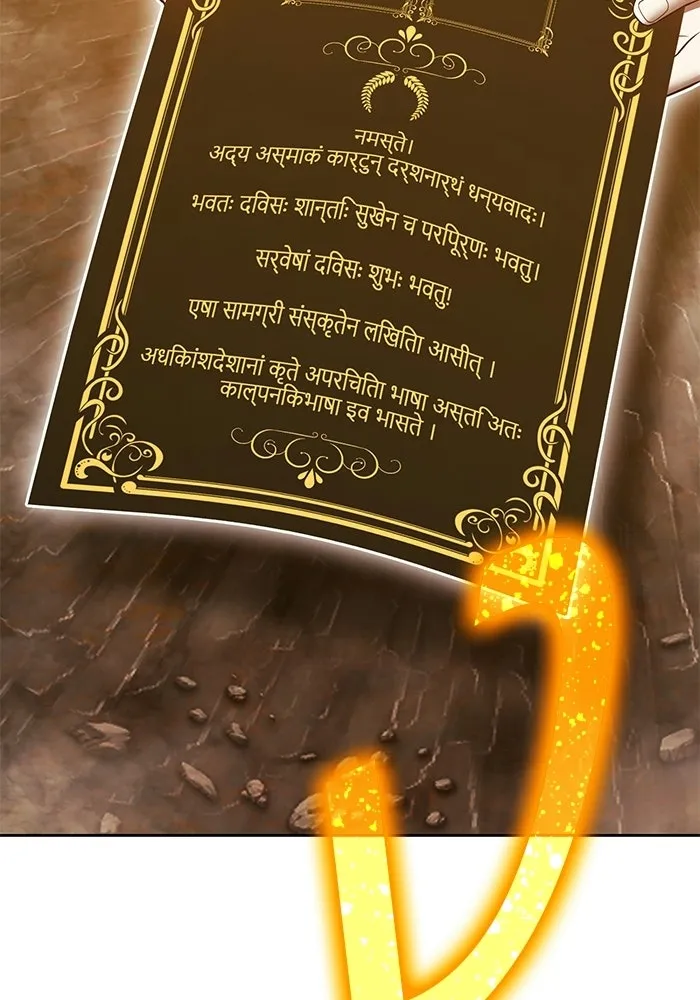 नमस्ते।
अद्य अस्माकं कार्टुन् दर्शनार्थं धन्यवादः।
भवतः दविसः शान्तिः सुखेन च परपिूर्णः भवतु।
सर्वेषां दविसः शुभः भवतु!
एषा सामग्री संस्कृतेन लखिति आसीत् ।
अधकिांशदेशानां कृते अपरचिति भाषा अस्ति अतः
काल्पनकिभाषा इव भासते ।